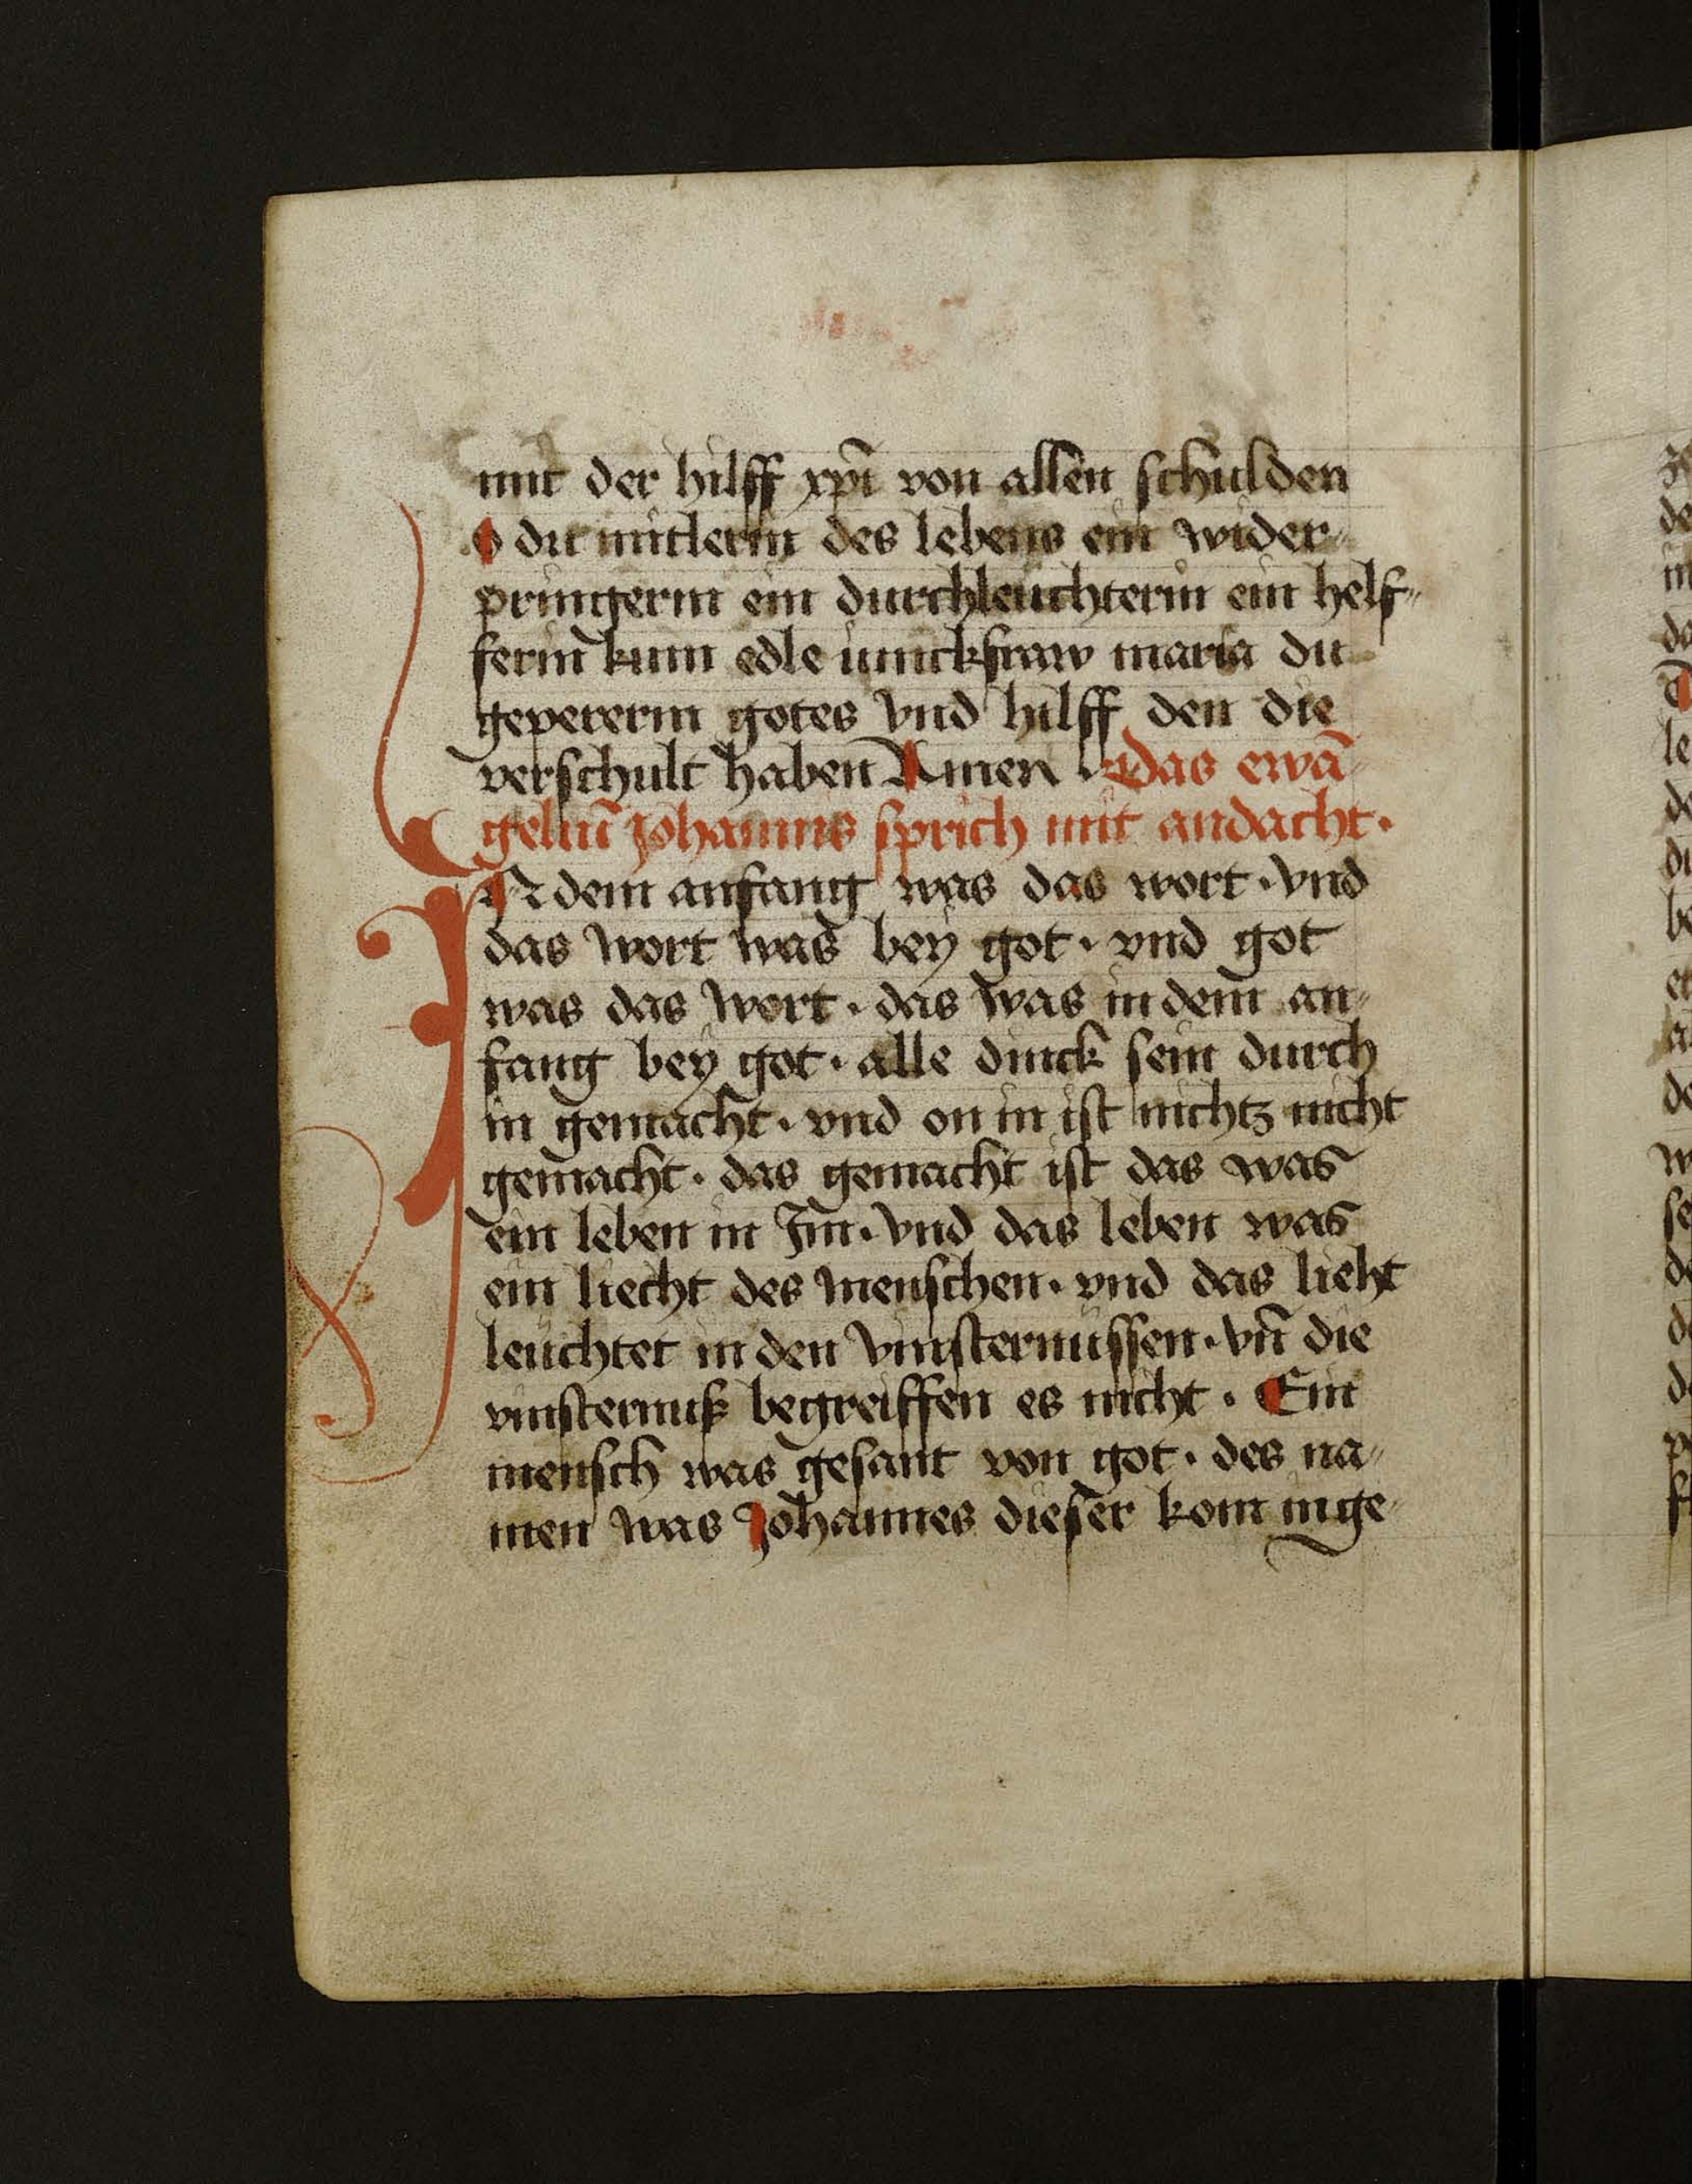 mit der hilff xpī von allen schulden
O du mitlerin des lebens ein wider⸗
pringerin ein durchleuchterin ein helf⸗
ferin kum edle iunckfraw maria du
gepererin gotes vnd hilff den die
verschult haben Amen · Das ewā⸗
geliū Johannis sprich mit andacht ·
IN dem anfang was das wort · vnd
das wort was bey got · vnd got
was das wort · das was in dem an⸗
fang bey got · alle dinck sein durch
in gemacht · vnd on in ist nichtz nicht
gemacht · das gemacht ist das was
ein leben in Im · vnd das leben was
ein liecht des menschen · vnd das lieht
leuchtet in den vinsternussen · vn̄ die
vinsternuß begreiffen es nicht · Ein
mensch was gesant von got · des na⸗
men was Johannes dieser kom inge⸗